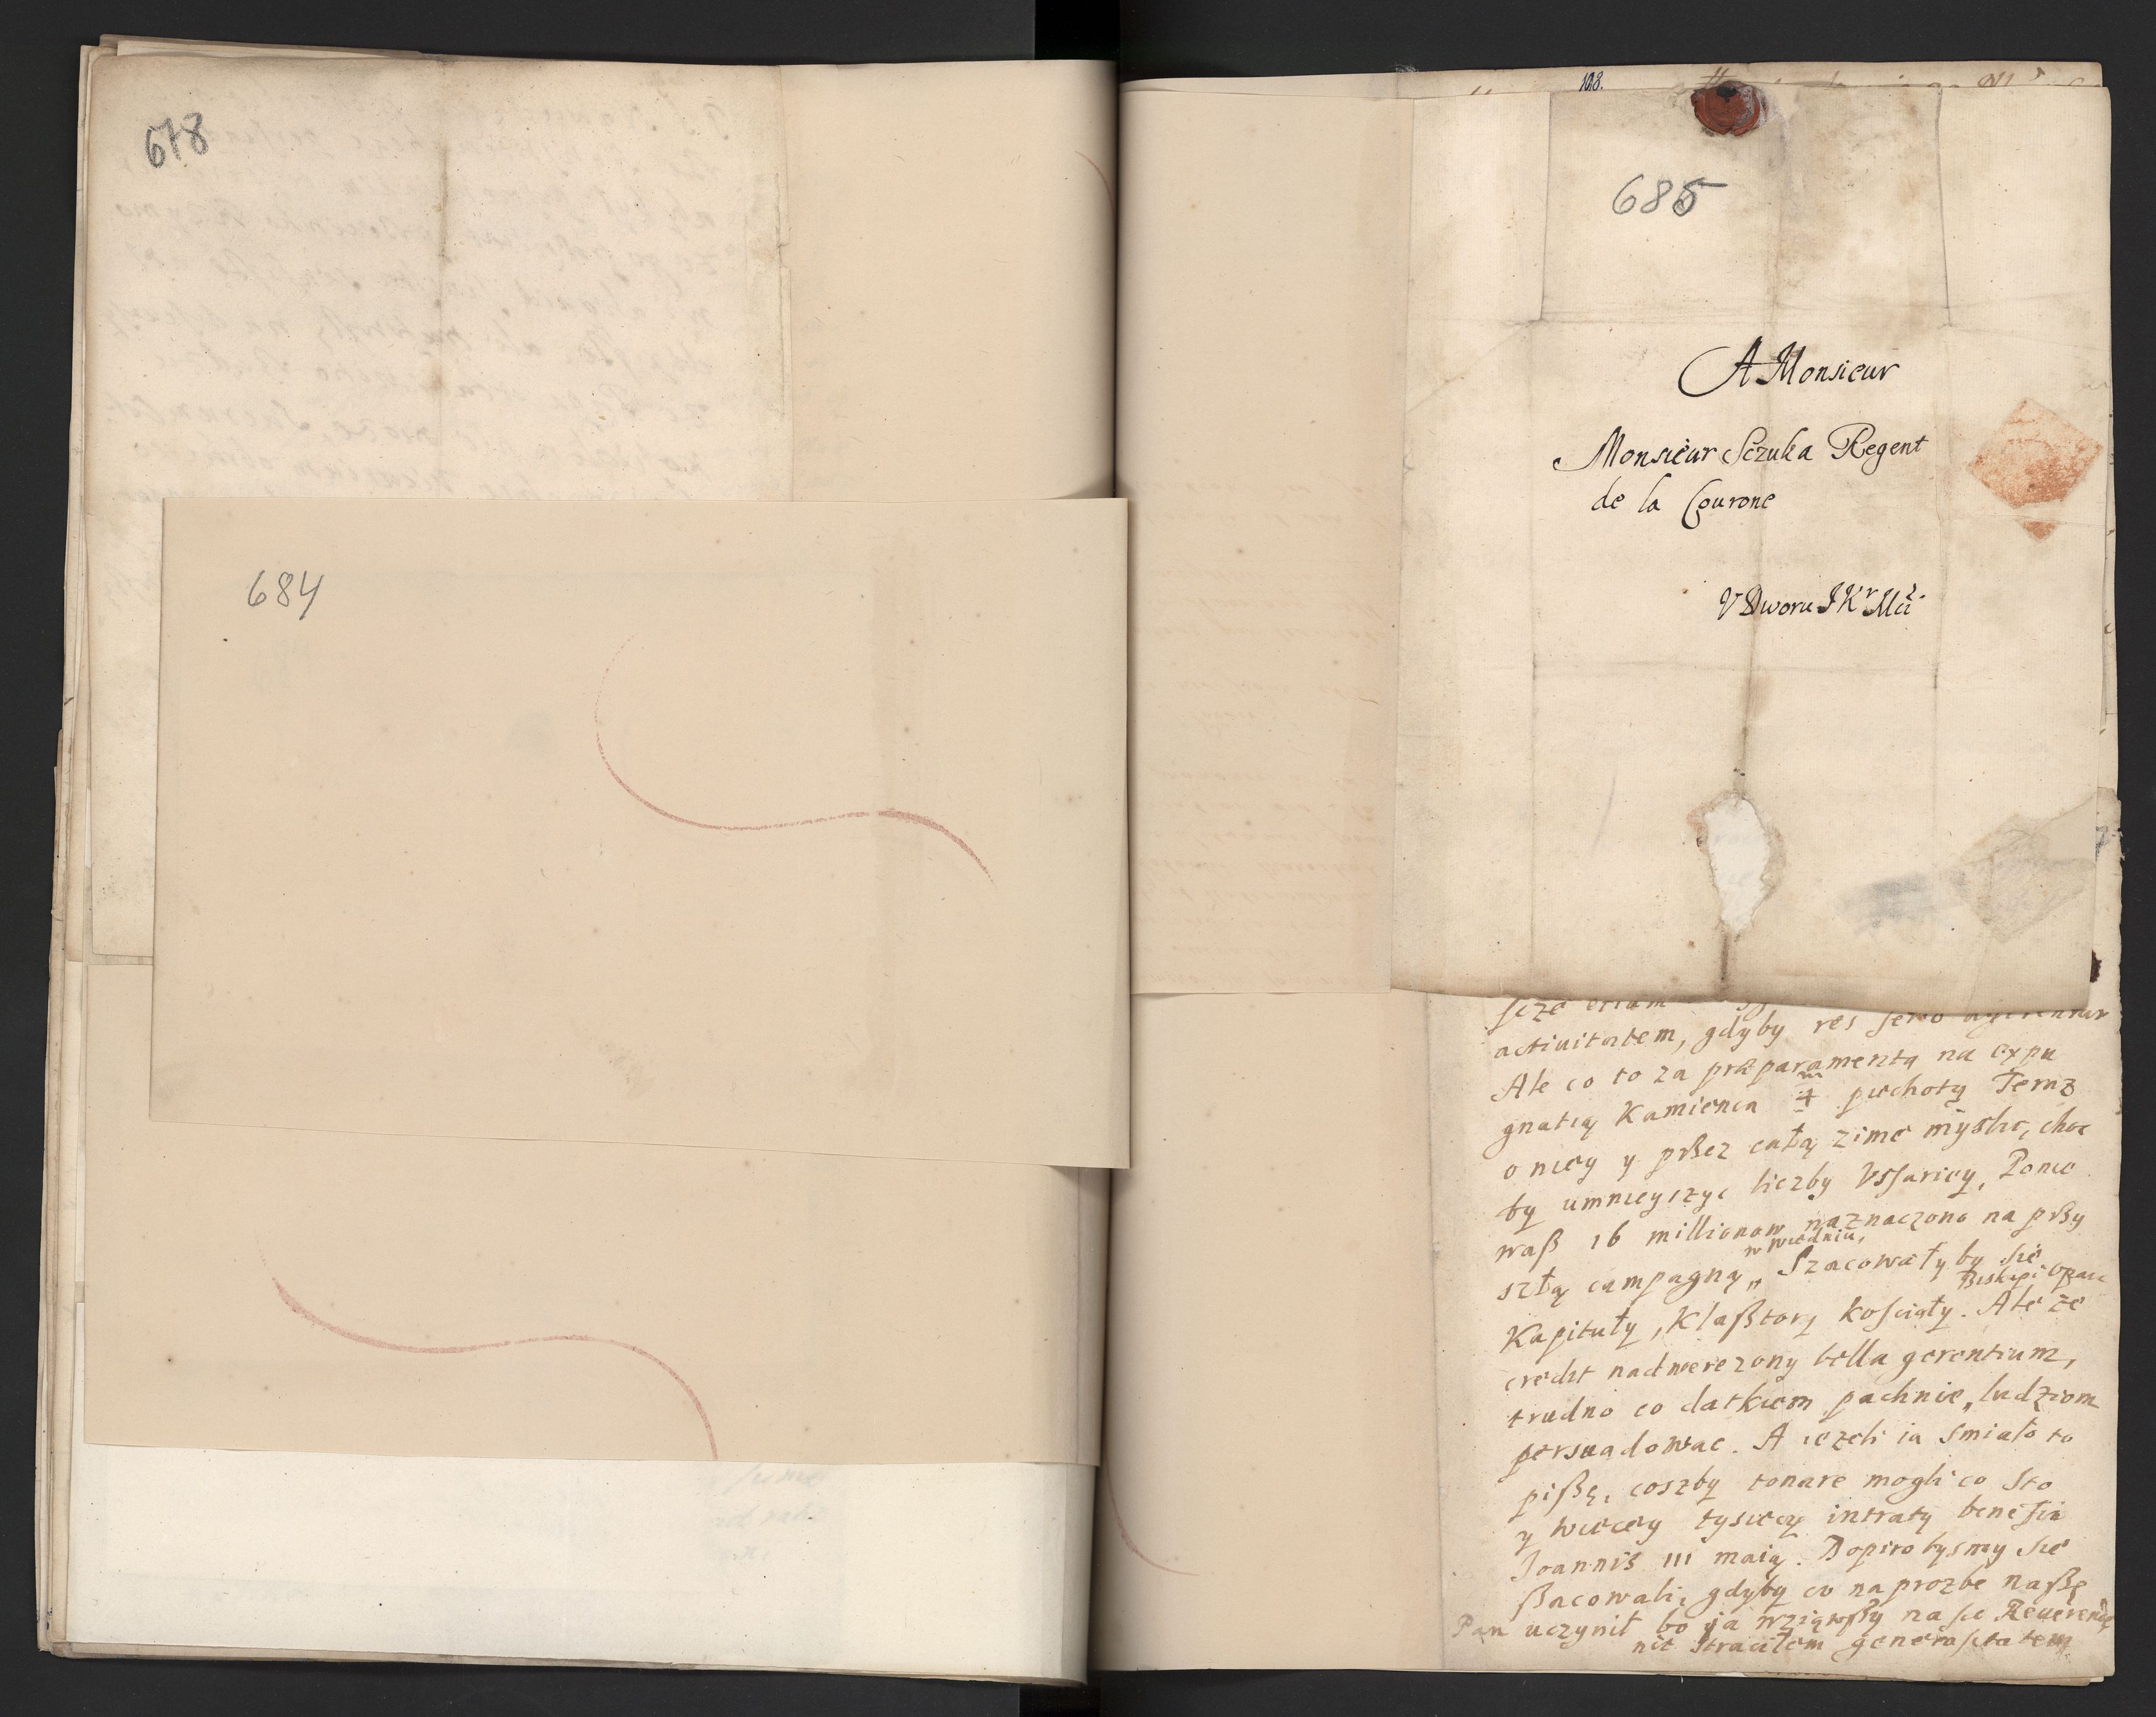 678
684
103.
685
A Monsieur
Monsieur Sczuka Regent
de la Courone
V Dworu JKr Mci
activitatem, gdyby res serio agerentur
Ale co to za præparamenta na expu
gnatią Kamienca 4 m piechoty Teraz
o niey y przez całą zime myslic, choc
by umnieyszyc liczby Vssariey, Ponie
waß 16 millionow naznaczono na prßy
szłą campagną w Wiedniu, Szacowały by się Biskupi Opaci
Kapituły, Klaßtory kościoły. Ale że
credit nadwerezony bella gerentium,
trudno co datkiem pachnie, ludziom
persuadowac. A iezeli ia smiało to
pißę, coszby tonare mogli co Sto
y wiecey tysiecy intraty benefia
Joannis III maią. Dopiro bysmy sie
ßacowali, gdyby co na prozbe naßę
Pan uczynił bo ja wziąwßy na se Reverendę
nie straciłem generositatem